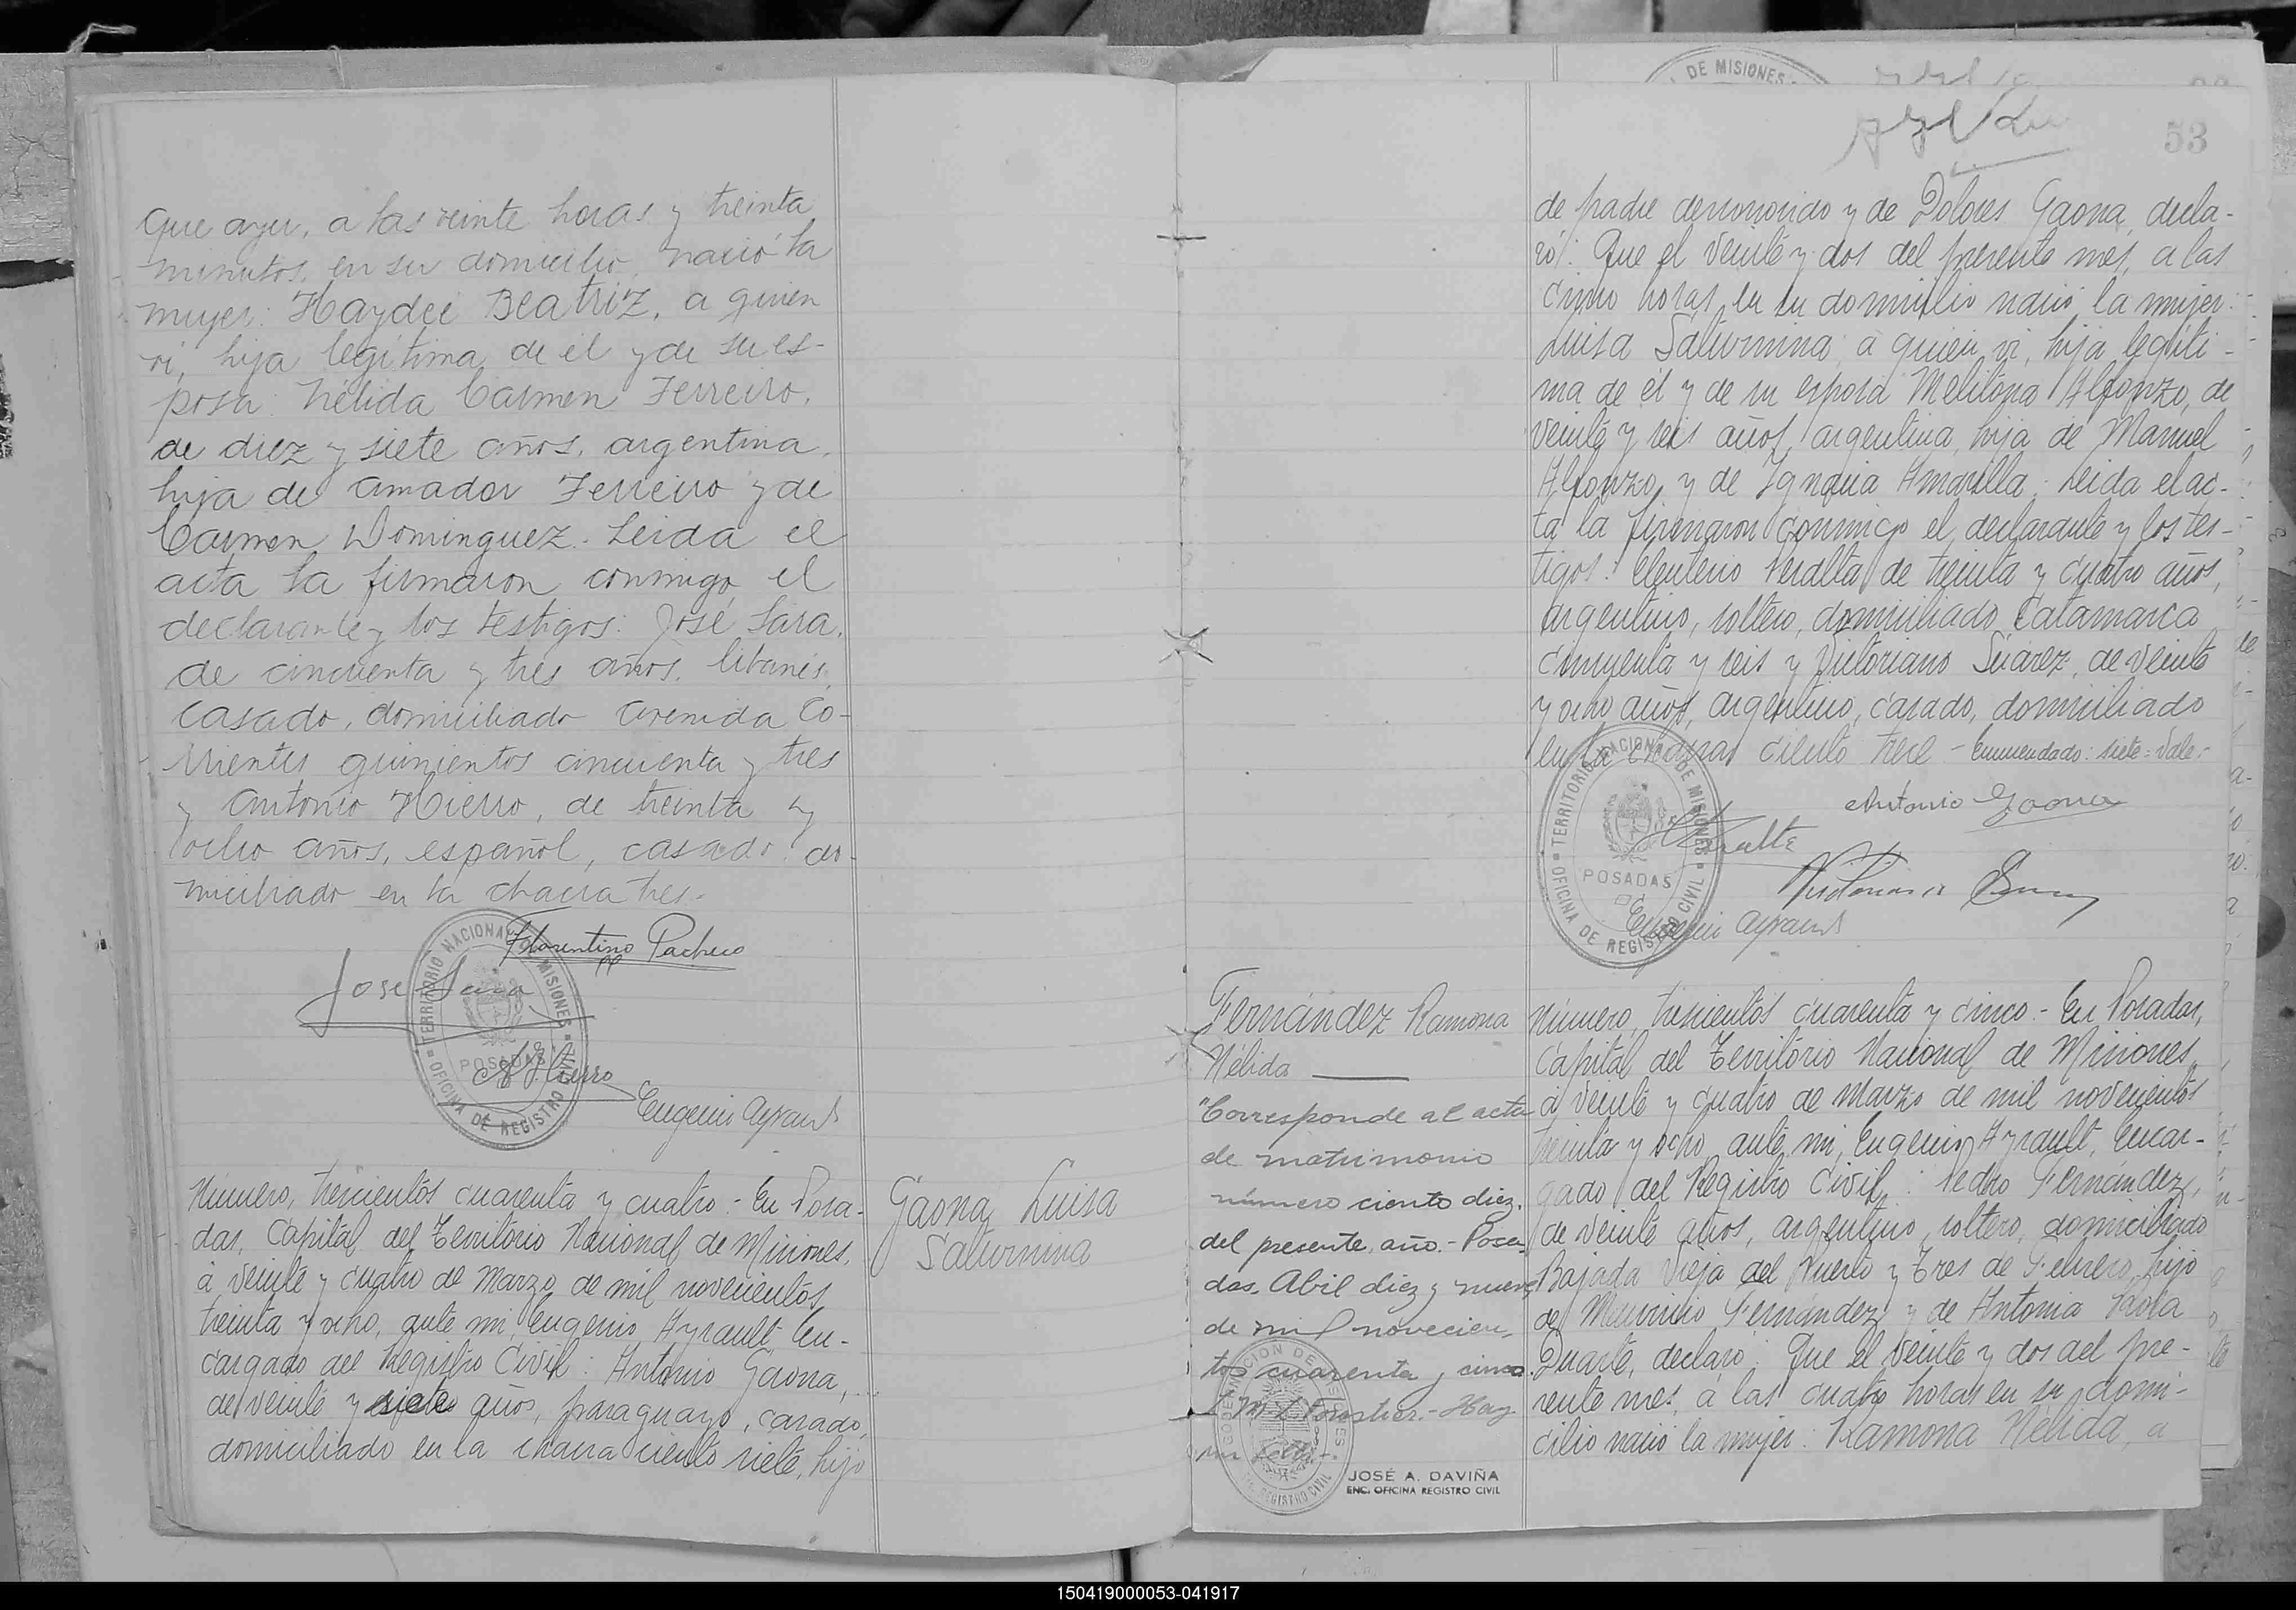 que ayer, a las veinte horas y treinta
minutos, en su domicilio, nació la
mujer: Haydee Beatriz, a quien
vi, hija legítima de él y de su es-
posa: Nélida Carmen Ferreiro,
de diez y siete años, argentina,
hija de Amador Ferreiro y de
Carmen Dominguez.- Leida el
acta la firmaron conmigo, el
declarante y los testigos: José Sara,
de cincuenta y tres años, libanés,
casado, domiciliado Avenida Co-
rrientes quinientos cincuenta y tres
y Antonio Hierro, de treinta y
ocho años, español, casado, do-
miciliado en la chacra tres.-
Florentino Pacheco
Jose Sara
A. Hierro
Eugenio Ayrault
TERRITORIO NACIONAL DE MISIONES
POSADAS
OFICINA DE REGISTRO CIVIL
Gaona, Luisa
Saturnina
Número, trescientos cuarenta y cuatro.- En Posa-
das, Capital del Territorio Nacional de Misiones,
a veinte y cuatro de Marzo de mil novecientos
treinta y ocho, ante mi, Eugenio Ayrault, En-
cargado del Registro Civil: Antonio Gaona,
de veinte y siete años, paraguayo, casado,
domiciliado en la chacra ciento siete, hijo
DE MISIONES
53
de padre desconocido y de Dolores Gaona, decla-
ró: Que el veinte y dos del presente mes, a las
cinco horas, en su domicilio nació la mujer:
Luisa Saturnina a quien vi, hija legíti-
ma de él y de su esposa Melitona Alfonzo, de
veinte y seis años, argentina, hija de Manuel
Alfonzo, y de Ignacia Amarilla. Leida el ac-
ta la firmaron conmigo el declarante y los tes-
tigos: Eleuterio Peralta de treinta y cuatro años,
argentino, soltero, domiciliado Catamarca
cincuenta y seis y Victoriano Suárez, de veinte
y ocho años, argentino, casado, domiciliado
en la chacra ciento trece - Enmendado: siete= Vale.-
Antonio Gaona
Peralta
Victoriano
Eugenio Ayrault
TERRITORIO NACIONAL DE MISIONES
POSADAS
OFICINA DE REGISTRO CIVIL
Fernández Ramona
Nélida
"Corresponde al acta
de matrimonio
número ciento diez.
del presente, año.- Posa-
das, Abil diez y nueve
de mil novecien-
tos cuarenta y cinco
REGISTRO CIVIL
JOSÉ A. DAVIÑA
ENC. OFICINA REGISTRO CIVIL
Número, trescientos cuarenta y cinco.- En Posadas,
Capital del Territorio Nacional de Misiones,
a veinte y cuatro de Marzo de mil novecientos
treinta y ocho, ante mi, Eugenio Ayrault, Encar-
gado del Registro Civil: Pedro Fernández,
de veinte años, argentino, soltero, domiciliado
Bajada Vieja del Puerto y Tres de Febrero, hijo
de Mauricio Fernández y de Antonia Rosa
Duarte, declaró: Que el veinte y dos del pre-
sente mes, a las cuatro horas en su domi-
cilio nació la mujer: Ramona Nélida, a
150419000053-041917